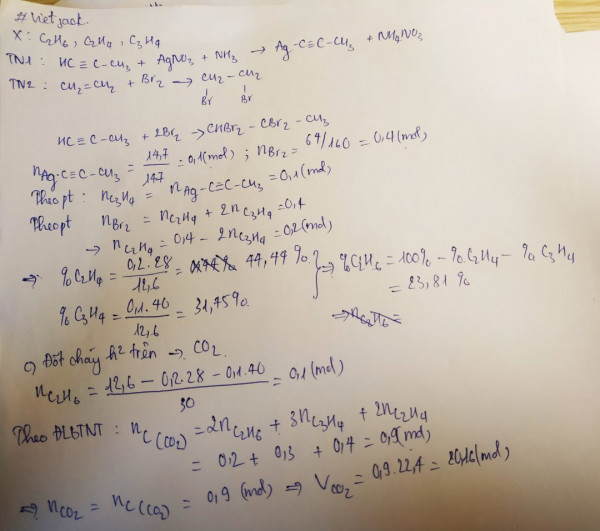 # Vietjack.
X: C2H6, C2H4, C3H4
TN1: HC ≡ C – CH3 + AgNO3 + NH3 → Ag-C≡C-CH3 + NH4NO3
TN2: CH2=CH2 + Br2 → CH2 – CH2
Br Br
HC ≡ C – CH3 + 2Br2 → CHBr2 – CBr2 – CH3
nAg-C≡C-CH3 = 14,7/147 = 0,1(mol) ; nBr2 = 64/160 = 0,4(mol)
Theo pt : nC3H4 = nAg-C≡C-CH3 = 0,1(mol)
Theo pt nBr2 = nC2H4 + 2nC3H4 = 0,4
→ nC2H4 = 0,4 – 2nC3H4 = 0,2(mol)
⇒ %C2H4 = 0,2.28/12,6 = 44,44% ⇒ %C2H6 = 100% – %C2H4 – %C3H4
%C3H4 = 0,1.40/12,6 = 31,75% = 23,81%
⇒ nC2H6
c) Đốt cháy h² trên → CO2.
nC2H6 = 12,6 – 0,2.28 – 0,1.40/30 = 0,1(mol)
Theo ĐLBTNT : nC(CO2) = 2nC2H6 + 3nC3H4 + 2nC2H4
= 0,2 + 0,3 + 0,4 = 0,9(mol)
⇒ nCO2 = nC(CO2) = 0,9 (mol) ⇒ VCO2 = 0,9.22,4 = 20,16(mol)